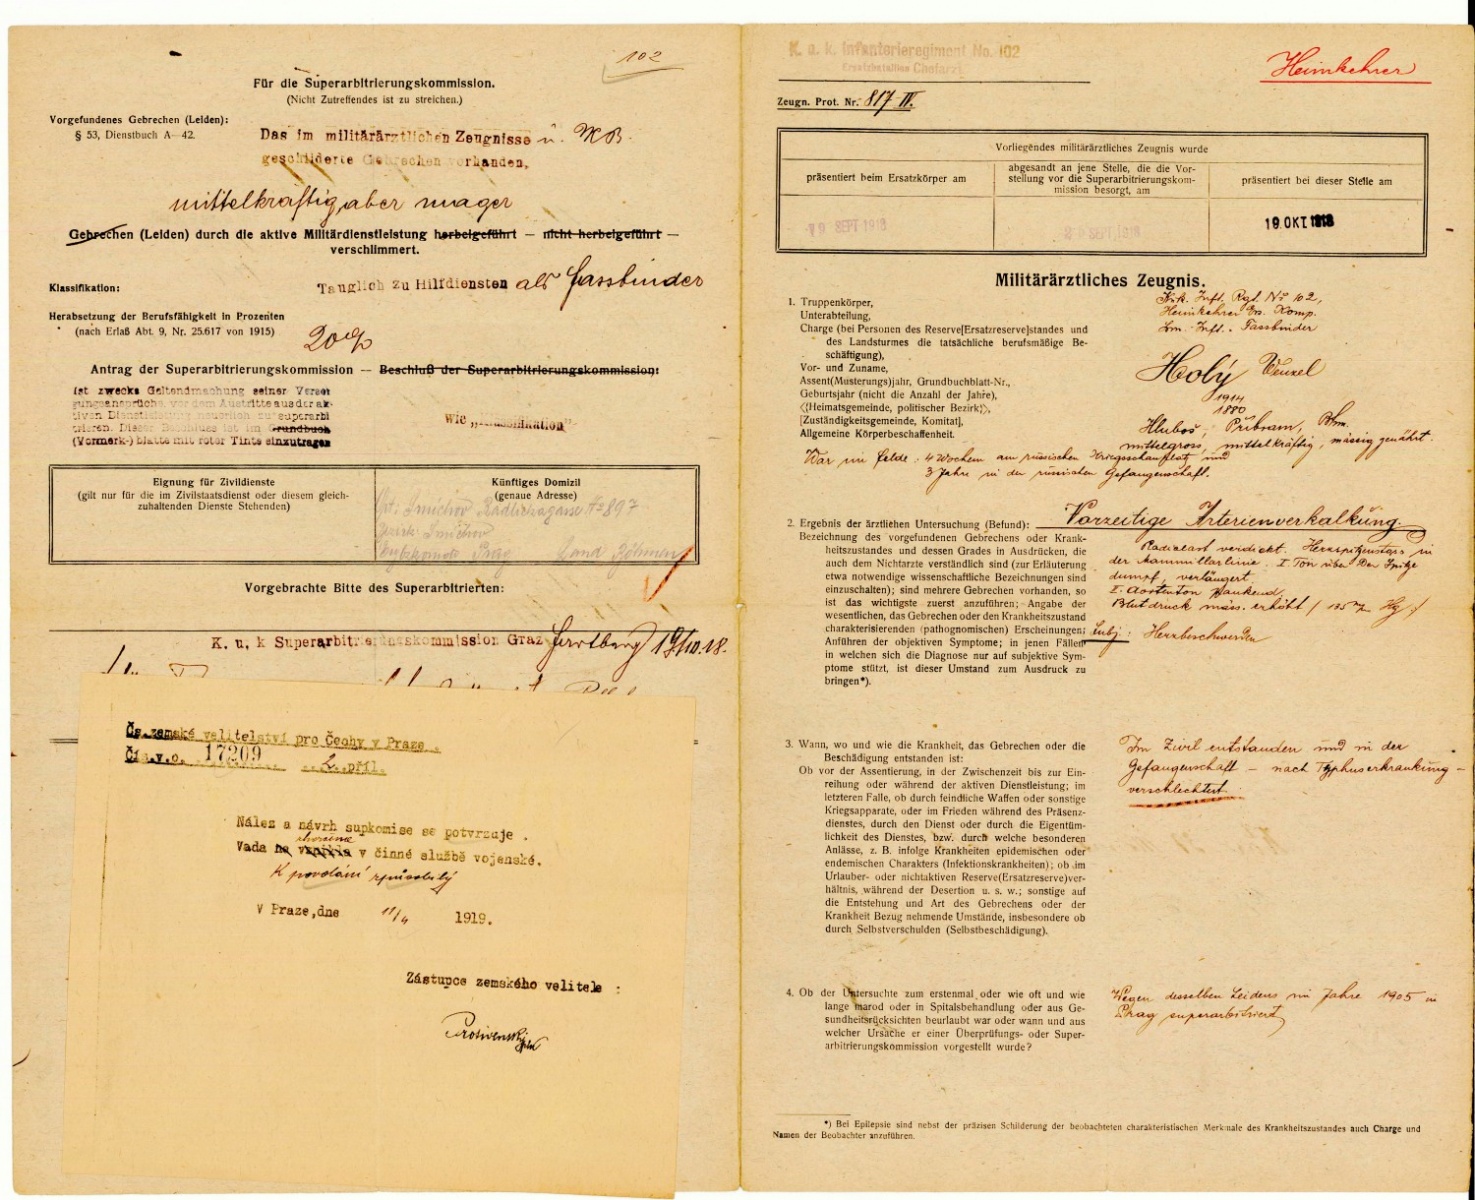 102
Für die Superarbitrierungskommission.
(Nicht Zutreffendes ist zu streichen.)
Vorgefundenes Gebrechen (Leiden):
§ 53, Dienstbuch A—42.
Das im militärärztlichen Zeugnisse u. KB
geschilderte Gebrechen vorhanden,
mittelkräftig, aber mager
Gebrechen (Leiden) durch die aktive Militärdienstleistung herbeigeführt — nicht herbeigeführt —
verschlimmert.
Klassifikation:
Tauglich zu Hilfdiensten als Fassbinder
Herabsetzung der Berufsfähigkeit in Prozenten
(nach Erlaß Abt. 9, Nr. 25.617 von 1915)
20%
Antrag der Superarbitrierungskommission — Beschluß der Superarbitrierungskommission:
ist zwecks Geltendmachung seiner Versor
gungsansprüche vor dem Austritte aus der ak-
tiven Dienstleistung neuerlich zu superarbi
trieren. Dieser Beschluss ist im Grundbuch
(Vormerk-) blatte mit roter Tinte einzutragen
wie „Klassifikation"
Eignung für Zivildienste
(gilt nur für die im Zivilstaatsdienst oder diesem gleich-
zuhaltenden Dienste Stehenden)
Künftiges Domizil
(genaue Adresse)
Ort: Smichov Radlicagasse No 897
Bezirk: Smichov
Prag Land Böhmen
Vorgebrachte Bitte des Superarbitrierten:
K. u. k Superarbitrierungskommission Graz 19/10.18.
Čs.zemské velitelství pro Čechy v Praze.
Čís.v.o. 17209 2 příl.
Nález a návrh supkomise se potvrzuje .
zhoršena
Vada ne vznikla v činné službě vojenské.
K povolání způsobilý
V Praze,dne 11/4 1919.
Zástupce zemského velitele :
K. u. k. Infanterieregiment No. 102
Ersatzbataillon Chefarzt
Heimkehrer
Zeugn. Prot. Nr. 817 IV.
Vorliegendes militärärztliches Zeugnis wurde
präsentiert beim Ersatzkörper am
abgesandt an jene Stelle, die die Vor-
stellung vor die Superarbitrierungskom-
mission besorgt, am
präsentiert bei dieser Stelle am
19 SEPT 1918
SEPT 1918
19 OKT 1918
Militärärztliches Zeugnis.
1. Truppenkörper,
Unterabteilung,
Charge (bei Personen des Reserve[Ersatzreserve]standes und
des Landsturmes die tatsächliche berufsmäßige Be-
schäftigung),
Vor- und Zuname,
Assent(Musterungs)jahr, Grundbuchblatt-Nr.,
Geburtsjahr (nicht die Anzahl der Jahre),
(Heimatsgemeinde, politischer Bezirk),
[Zuständigkeitsgemeinde, Komitat],
Allgemeine Körperbeschaffenheit.
K.u.k. Inft. Rgt. No 102,
Heimkehrer Ers. Komp.
Lm. Inft. Fassbinder
Holý Wenzel
1914
1880
Hluboš, Přibram, Bhm.
mittelgross, mittelkräftig, mässig genährt.
War im Felde: 4 Wochen am russischen Kriegsschauplatz und
3 Jahre in der russischen Gefangenschaft.
2. Ergebnis der ärztlichen Untersuchung (Befund):
Bezeichnung des vorgefundenen Gebrechens oder Krank-
heitszustandes und dessen Grades in Ausdrücken, die
auch dem Nichtarzte verständlich sind (zur Erläuterung
etwa notwendige wissenschaftliche Bezeichnungen sind
einzuschalten); sind mehrere Gebrechen vorhanden, so
ist das wichtigste zuerst anzuführen; Angabe der
wesentlichen, das Gebrechen oder den Krankheitszustand
charakterisierenden (pathognomischen) Erscheinungen;
Anführen der objektiven Symptome; in jenen Fällen
in welchen sich die Diagnose nur auf subjektive Sym-
ptome stützt, ist dieser Umstand zum Ausdruck zu
bringen*).
Vorzeitige Arterienverkalkung.
Radialart verdickt. Herzspitzenstoss in
der Mammillarlinie. I Ton über der Spitze
dumpf, verlängert.
I. Aortenton paukend,
Blutdruck mäss. erhöht / 135 m Hg /
Subj: Herzbeschwerden
3. Wann, wo und wie die Krankheit, das Gebrechen oder die
Beschädigung entstanden ist:
Ob vor der Assentierung, in der Zwischenzeit bis zur Ein-
reihung oder während der aktiven Dienstleistung; im
letzteren Falle, ob durch feindliche Waffen oder sonstige
Kriegsapparate, oder im Frieden während des Präsenz-
dienstes, durch den Dienst oder durch die Eigentüm-
lichkeit des Dienstes, bzw. durch welche besonderen
Anlässe, z. B. infolge Krankheiten epidemischen oder
endemischen Charakters (Infektionskrankheiten); ob im
Urlauber- oder nichtaktiven Reserve(Ersatzreserve)ver-
hältnis, während der Desertion u. s. w.; sonstige auf
die Entstehung und Art des Gebrechens oder der
Krankheit Bezug nehmende Umstände, insbesondere ob
durch Selbstverschulden (Selbstbeschädigung).
Im Zivil entstanden und in der
Gefangenschaft — nach Typhuserkrankung —
verschlechtert.
4. Ob der Untersuchte zum erstenmal oder wie oft und wie
lange marod oder in Spitalsbehandlung oder aus Ge-
sundheitsrücksichten beurlaubt war oder wann und aus
welcher Ursache er einer Überprüfungs- oder Super-
arbitrierungskommission vorgestellt wurde?
Wegen desselben Leidens im Jahre 1905 in
Prag superarbitriert
*) Bei Epilepsie sind nebst der präzisen Schilderung der beobachteten charakteristischen Merkmale des Krankheitszustandes auch Charge und
Namen der Beobachter anzuführen.